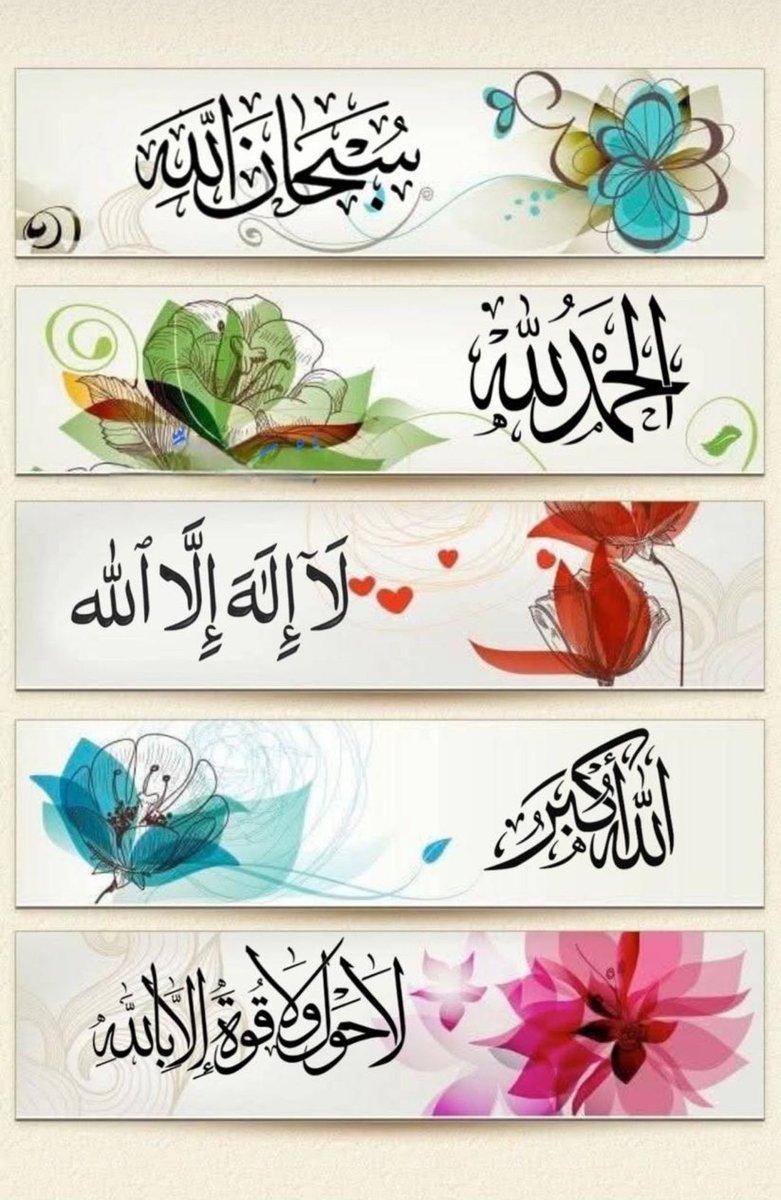 سُبْحَانَ اللَّهِ
الحَمْدُ لِلَّهِ
لَآ إِلَٰهَ إِلَّا ٱللَّه
اللّه أكْبَر
لَا حَوْل وَلَا قُوةَ إِلَّا بِاللَّهِ